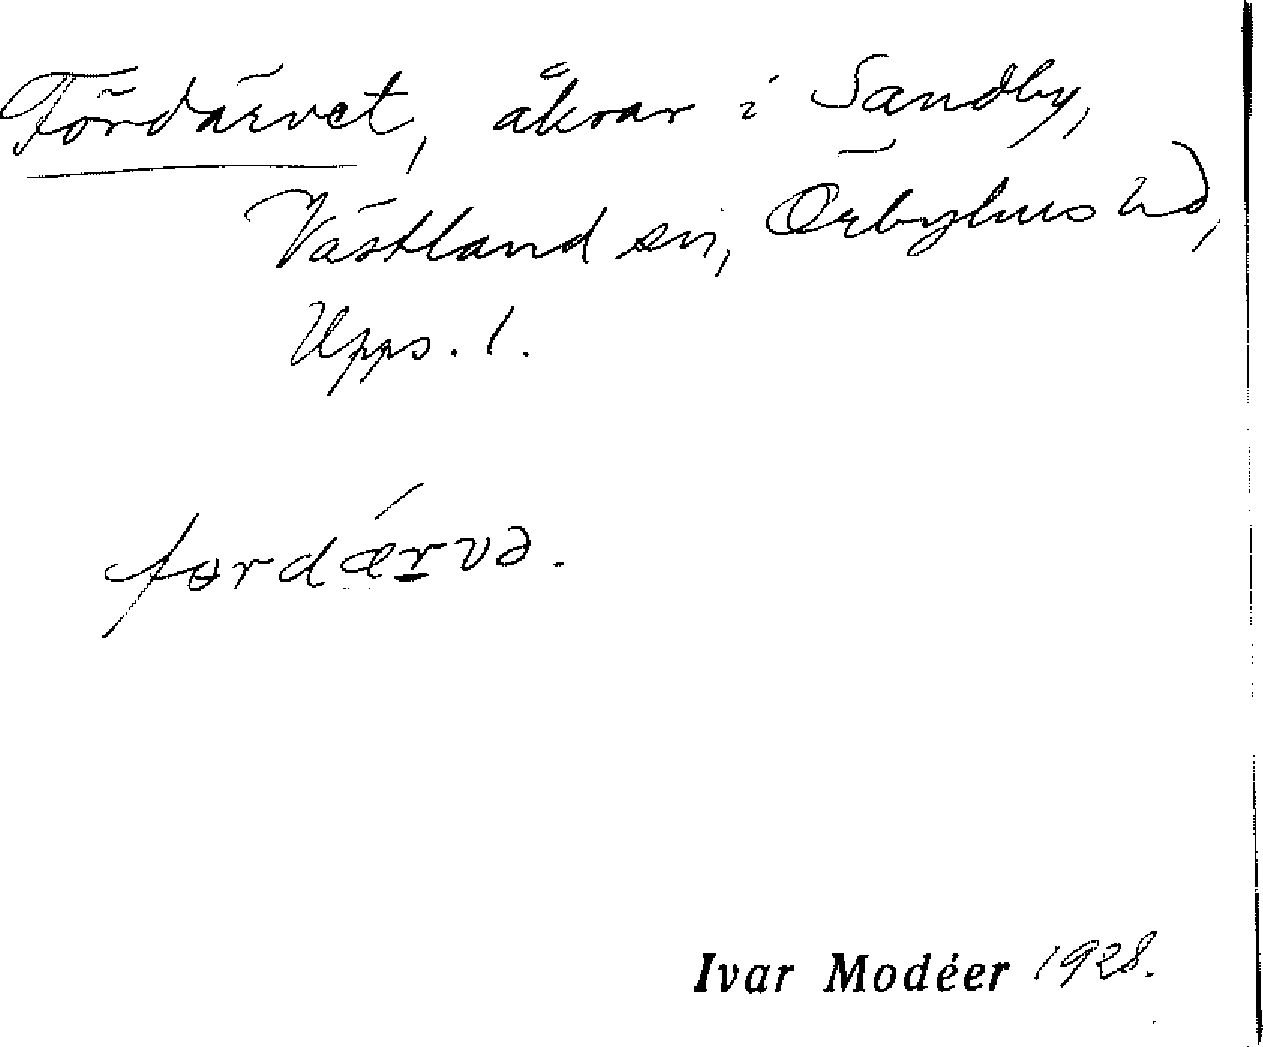 Fördärvet, åkrar i Sandby,
Västland sn, Örbyhus hd,
Upps. l.
fɵrdǽrvə.
Ivar Modéer 1928.